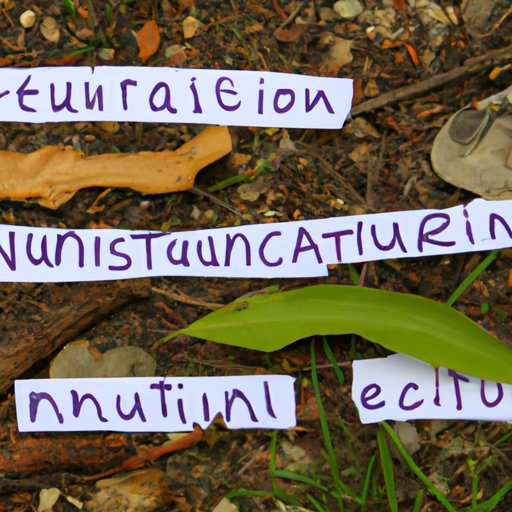 eunraieion
NUNISTauNCATURIN
nnutinl ectu